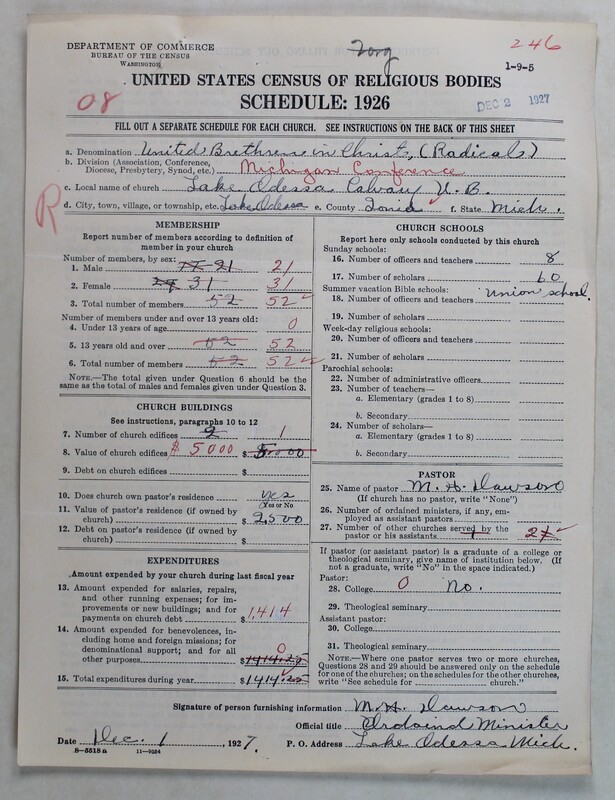 DEPARTMENT OF COMMERCE
BUREAU OF THE CENSUS
WASHINGTON
246
1-9-5
UNITED STATES CENSUS OF RELIGIOUS BODIES
08
SCHEDULE: 1926
DEC 2 1927
FILL OUT A SEPARATE SCHEDULE FOR EACH CHURCH. SEE INSTRUCTIONS ON THE BACK OF THIS SHEET
a. Denomination United Brethren in Christ, (Radicals)
b. Division (Association, Conference, Diocese, Presbytery, Synod, etc.) Michigan Conference
c. Local name of church Lake Odessa Calvary U. B.
R
d. City, town, village, or township, etc. Lake Odessa e. County Ionia f. State Mich.
MEMBERSHIP
Report number of members according to definition of
member in your church
Number of members, by sex:
1. Male 21 21
2. Female 31 31
3. Total number of members 52 52
Number of members under and over 13 years old:
4. Under 13 years of age 0
5. 13 years old and over 52 52
6. Total number of members 52 52
NOTE.—The total given under Question 6 should be the
same as the total of males and females given under Question 3.
CHURCH BUILDINGS
See instructions, paragraphs 10 to 12
7. Number of church edifices 2 1
8. Value of church edifices $ 5000 $ 5000
9. Debt on church edifices $
10. Does church own pastor's residence yes
(Yes or No)
11. Value of pastor's residence (if owned by
church) $ 2500
12. Debt on pastor's residence (if owned by
church) $
EXPENDITURES
Amount expended by your church during last fiscal year
13. Amount expended for salaries, repairs,
and other running expenses; for im-
provements or new buildings; and for
payments on church debt $ 1,414
14. Amount expended for benevolences, in-
cluding home and foreign missions; for
denominational support; and for all
other purposes 0 $ 1414.25
15. Total expenditures during year $ 1414.25
CHURCH SCHOOLS
Report here only schools conducted by this church
Sunday schools:
16. Number of officers and teachers 8
17. Number of scholars 60
Summer vacation Bible schools:
18. Number of officers and teachers Union school.
19. Number of scholars
Week-day religious schools:
20. Number of officers and teachers
21. Number of scholars
Parochial schools:
22. Number of administrative officers
23. Number of teachers—
a. Elementary (grades 1 to 8)
b. Secondary
24. Number of scholars—
a. Elementary (grades 1 to 8)
b. Secondary
PASTOR
25. Name of pastor M. H. Dawson
(If church has no pastor, write "None")
26. Number of ordained ministers, if any, em-
ployed as assistant pastors
27. Number of other churches served by the
pastor or his assistants 1 2
If pastor (or assistant pastor) is a graduate of a college or
theological seminary, give name of institution below. (If
not a graduate, write "No" in the space indicated.)
Pastor:
28. College 0 No.
29. Theological seminary
Assistant pastor:
30. College
31. Theological seminary
NOTE.—Where one pastor serves two or more churches,
Questions 28 and 29 should be answered only on the schedule
for one of the churches; on the schedules for the other churches,
write "See schedule for church."
Signature of person furnishing information M. H. Dawson
Official title Ordaind Minister
Date Dec. 1, 1927. P. O. Address Lake Odessa Mich.
8-5518 a 11-9124